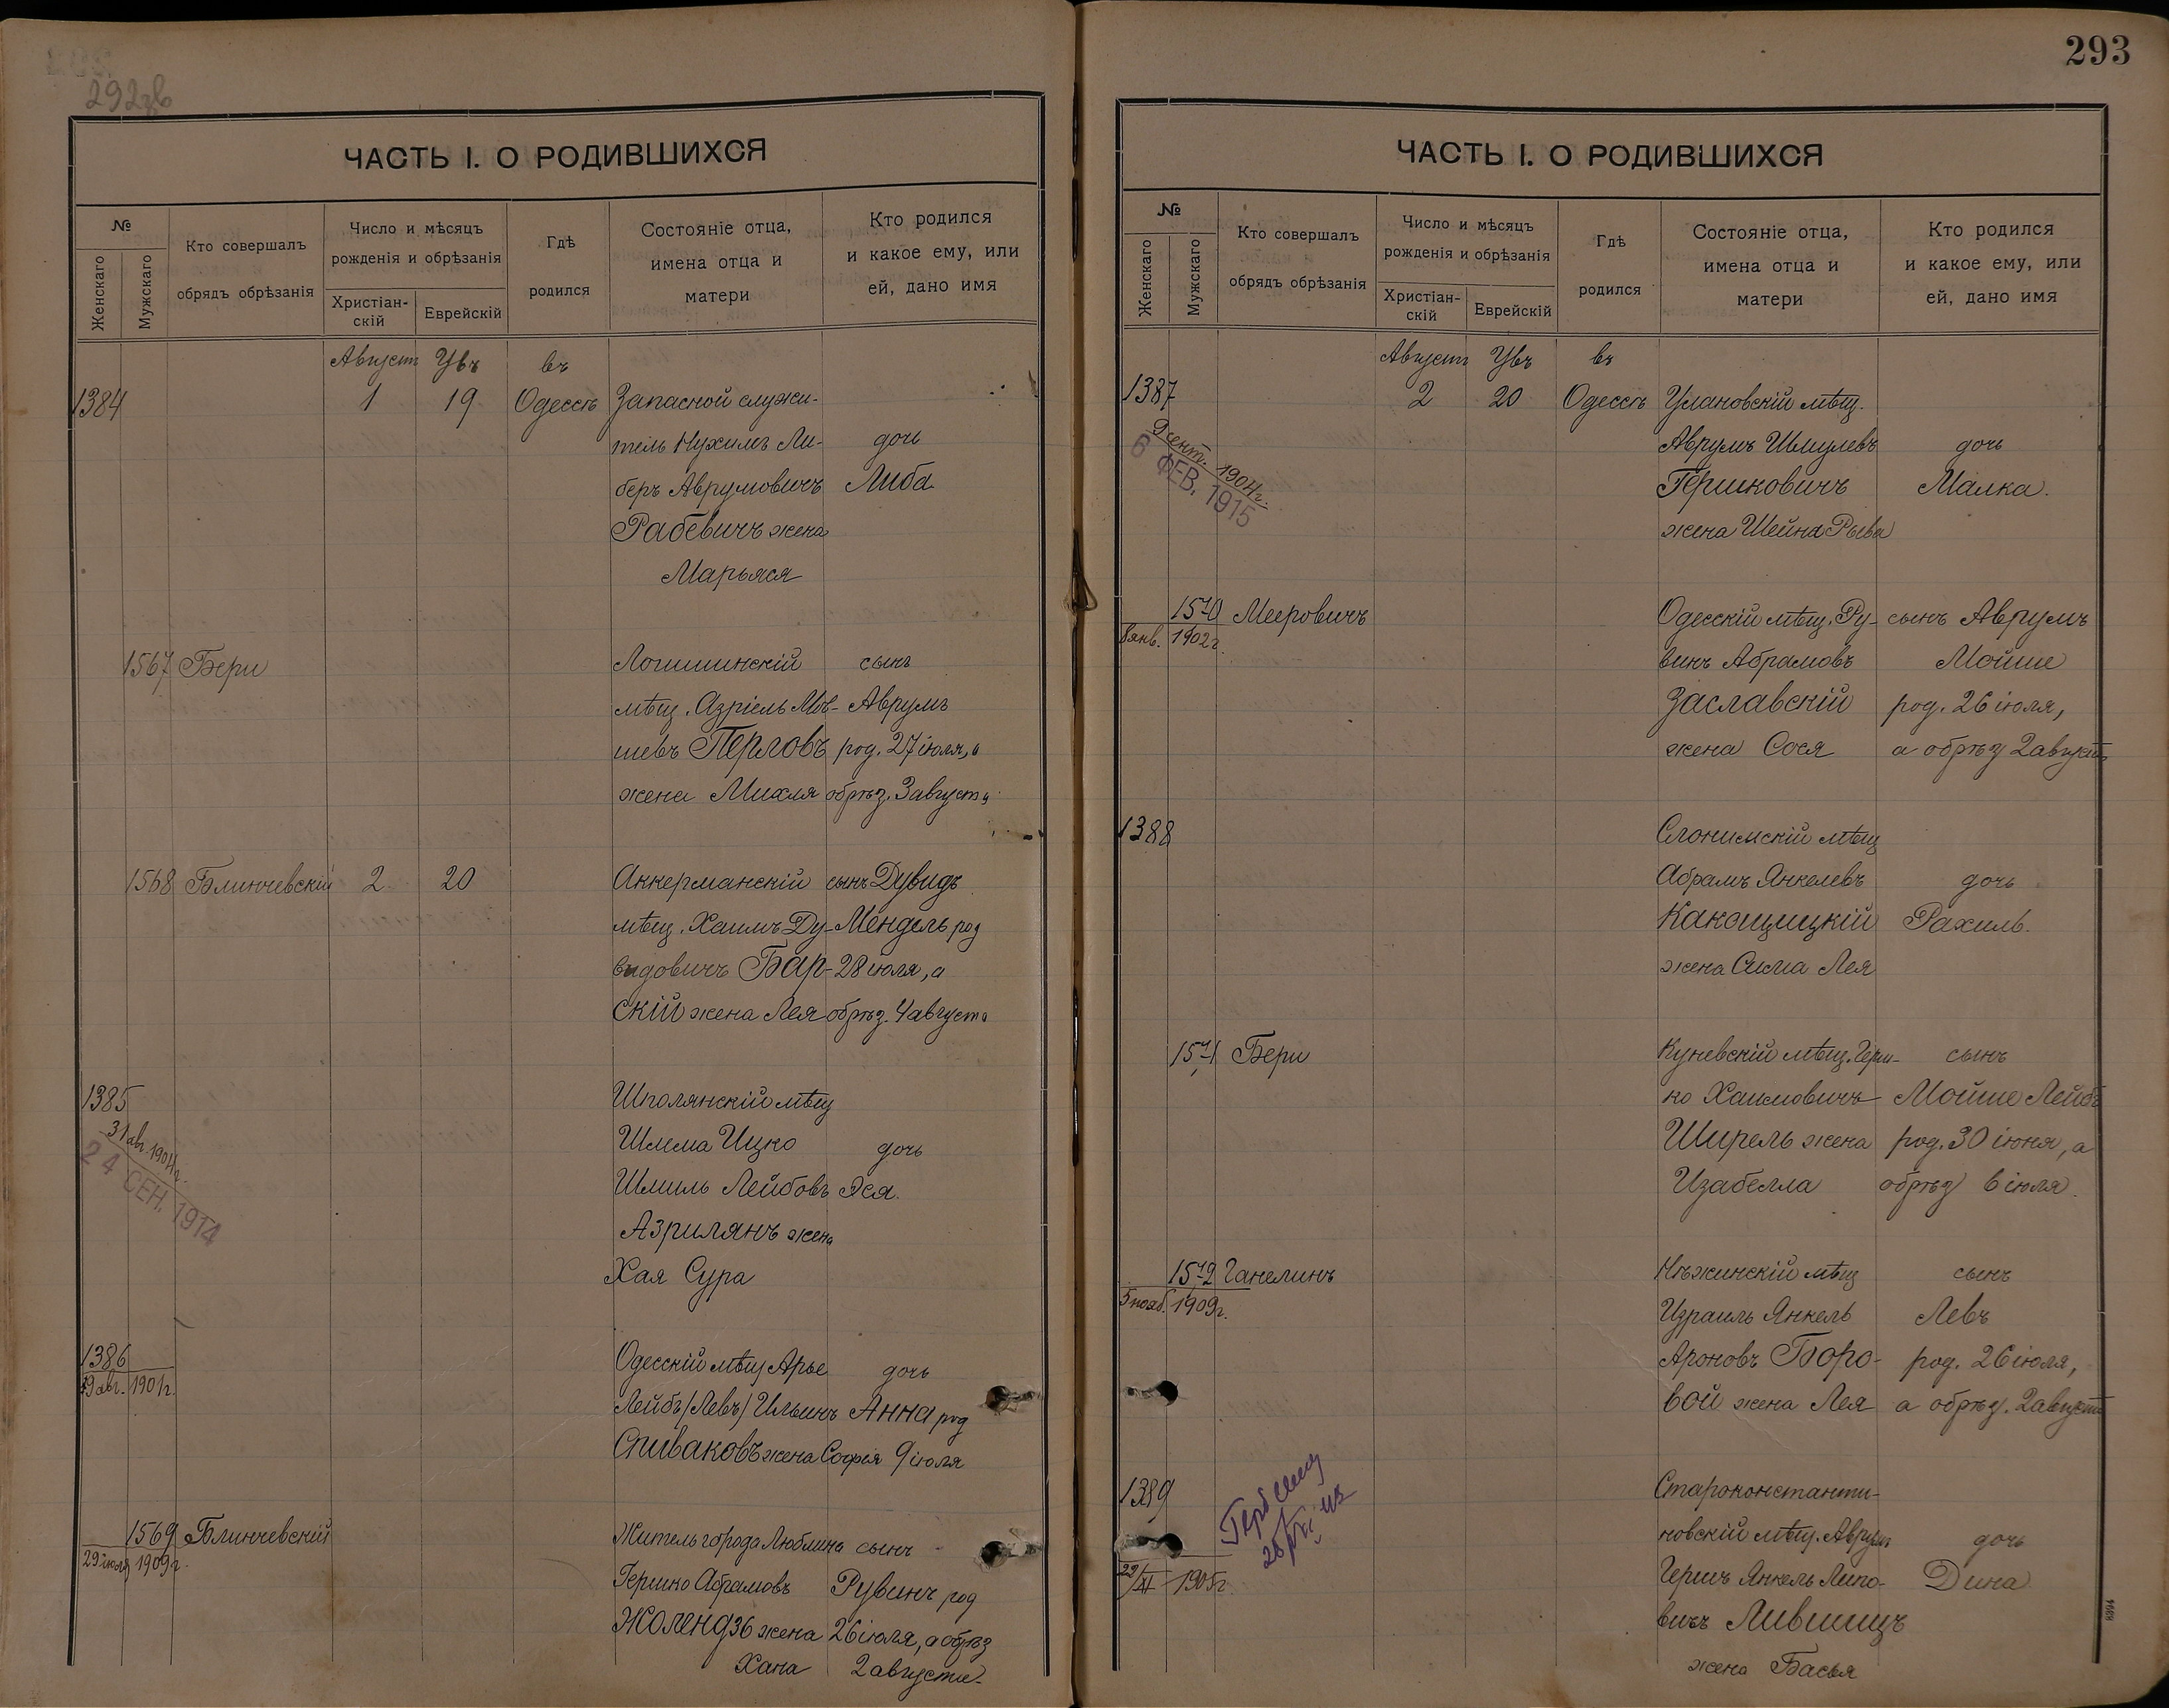 292зв
ЧАСТЬ I. О РОДИВШИХСЯ
№
Женскаго
Мужскаго
Кто совершалъ
обрядъ обрѣзанія
Число и мѣсяцъ
рожденія и обрѣзанія
Христіан-
скій
Еврейскій
Гдѣ
родился
Состояніе отца,
имена отца и
матери
Кто родился
и какое ему, или
ей, дано имя
Августъ Увъ въ
1384 1 19 Одессѣ Запасной служи-
тель Нухимъ Ли- дочь
беръ Аврумовичъ Либа
Рабевичъ жена
Марьяся
1567 Бери Логишинскій сынъ
мѣщ. Азріель Мов- Аврумъ
шевъ Перловъ род. 27 іюля, а
жена Михля обрѣз. 3 августа
1568 Блинчевскій 2 20 Аккерманскій сынъ Дувидъ
мѣщ. Хаимъ Ду- Мендель род
видовичъ Бар- 28 іюля, а
скій жена Лея обрѣз. 4 августа
1385 Шполянскій мѣщ
31 авг. 1904 г.
24 СЕН. 1914
Шлема Ицко дочь
Шмиль Лейбовъ Эся.
Азрилянъ жена
Хая Сура
1386 Одесскій мѣщ Арье дочь
авг. 1901 г.
Лейбъ /Левъ/ Ильинъ Анна род
Спиваковъ жена Софія 9 іюля
1569 Блинчевскій Житель города Люблина сынъ
29 іюля 1909 г.
Гершко Абрамовъ Рувинъ род
Жолендзъ жена 26 іюля, а обрѣз
Хана 2 августа
293
ЧАСТЬ I. О РОДИВШИХСЯ
№
Женскаго
Мужскаго
Кто совершалъ
обрядъ обрѣзанія
Число и мѣсяцъ
рожденія и обрѣзанія
Христіан-
скій
Еврейскій
Гдѣ
родился
Состояніе отца,
имена отца и
матери
Кто родился
и какое ему, или
ей, дано имя
Августъ Увъ въ
1387 2 20 Одессѣ Улановскій мѣщ.
9 сент. 1904 г.
6 ФЕВ. 1915
Аврумъ Шмулевъ дочь
Гершковичъ Малка.
жена Шейна Рыва
1570 Мееровичъ Одесскій мѣщ. Ру- сынъ Аврумъ
янв. 1902 г.
винъ Абрамовъ Мойше
Заславскій род. 26 іюля,
жена Сося а обрѣз 2 августа
1388 Слонимскій мѣщ
Абрамъ Янкелевъ дочь
Какощицкій Рахиль.
жена Сима Лея
1571 Бери Куневскій мѣщ. Герш- сынъ
ко Хаимовичъ Мойше Лейбъ
Ширель жена род. 30 іюня, а
Изабелла обрѣз 6 іюля.
1572 Ганелинъ Нѣжинскій мѣщ сынъ
5 нояб. 1909 г.
Израиль Янкель Левъ
Ароновъ Боро- род. 26 іюля,
вой жена Лея а обрѣз. 2 августа
1389 Староконстанти-
новскій мѣщ. Аврумъ дочь
29/XI 1905 г
Гершъ Янкель Липо- Дина
вичъ Лившицъ
жена Басья
8394